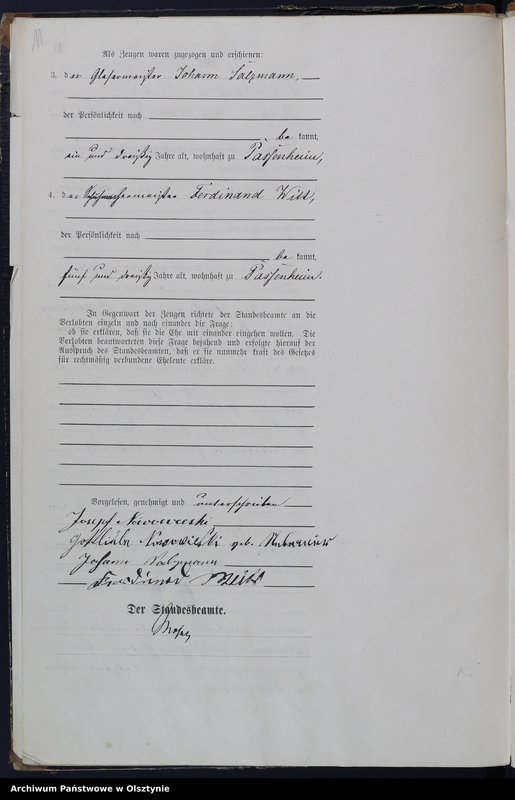 Als Zeugen waren zugezogen und erschienen:
3. der Glasermeister Johann Salzmann,
der Persönlichkeit nach
be kannt,
ein und dreißig Jahre alt, wohnhaft zu Passenheim,
4. der Schuhmachermeister Ferdinand Witt,
der Persönlichkeit nach
be kannt,
fünf und dreißig Jahre alt, wohnhaft zu Passenheim.
In Gegenwart der Zeugen richtete der Standesbeamte an die
Verlobten einzeln und nach einander die Frage:
ob sie erklären, daß sie die Ehe mit einander eingehen wollen. Die
Verlobten beantworteten diese Frage bejahend und erfolgte hierauf der
Ausspruch des Standesbeamten, daß er sie nunmehr kraft des Gesetzes
für rechtmäßig verbundene Eheleute erkläre.
Vorgelesen, genehmigt und unterschrieben
Joseph
geb.
Johann Salzmann
Ferdinand Witt
Der Standesbeamte.
Archiwum Państwowe w Olsztynie